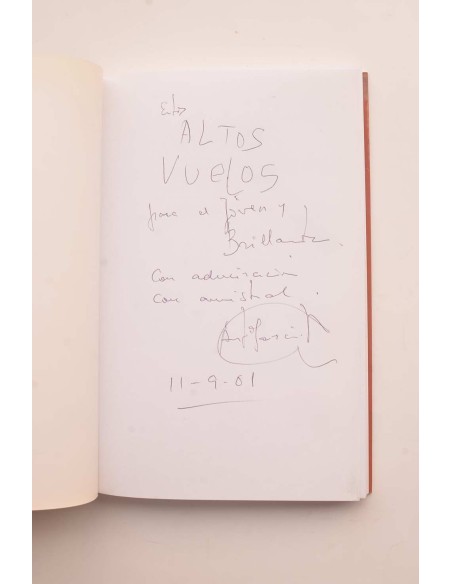 Estos
ALTOS
VUELOS
para el Joven y
Brillante.
Con admiración
Con amistad.
11-9-01